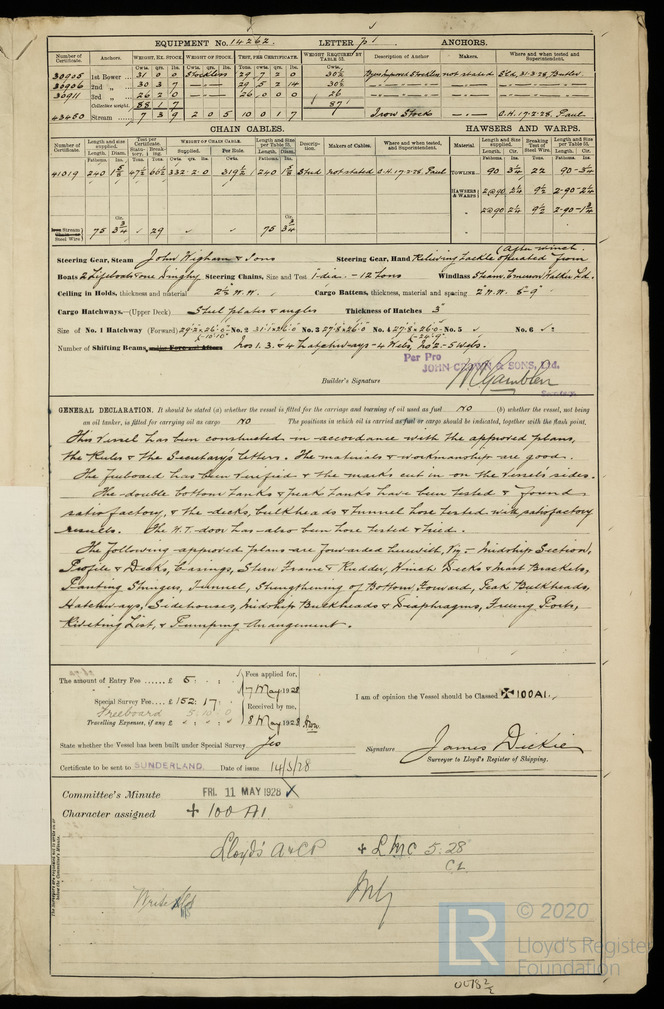 EQUIPMENT No. 14262. LETTER p1 ANCHORS.
Number of Certificate. Anchors. WEIGHT, EX. STOCK. WEIGHT OF STOCK. TEST, PER CERTIFICATE. WEIGHT REQUIRED BY TABLE 53. Description of Anchor Makers. Where and when tested and Superintendent.
Cwts. qrs. lbs. Cwts. qrs. lbs. Tons. cwts. qrs. lbs. Cwts.
30905 1st Bower 31 0 0 Stockless 29 7 2 0 30½ Byers Improved Stockless not stated Sld. 31-3-28, Butler.
30906 2nd " 30 3 7 29 5 2 14 30½
30911 3rd " 26 2 0 26 0 0 0 26
Collective weight. 88 1 7 87
43450 Stream 7 3 9 2 0 5 10 0 1 7 Iron Stock C.H. 17-2-28. Paul.
CHAIN CABLES. HAWSERS AND WARPS.
Number of Certificate. Length and size supplied. Test per Certificate. WEIGHT OF CHAIN CABLE. Length and Size per Table 53. Description. Makers of Cables. Where and when tested, and Superintendent. Material Length and Size supplied. Breaking Test of Steel Wire. Length and Size per Table 53.
Length. Diam. Statutory. Breaking. Supplied. Per Rule. Length. Diam. Length. Cir. Length. Cir.
41019 240 1 5/8 47½ 66½ 332-2-0 319½ 240 1 5/8 Stud not stated C.H. 17-2-28 Paul TOWLINE 90 3¼ 22 90-3¼
HAWSERS & WARPS 2@90 2¼ 9½ 2-90-2¼
2@90 2¼ 9½ 2-90-1¾
Steel Wire 75 3¾ 29 75 3¾
Steering Gear, Steam John Wigham & Sons Steering Gear, Hand Relieving tackle operated from after winch.
Boats 2 Lifeboats one Dinghy Steering Chains, Size and Test 1" dia. - 12 Tons Windlass Steam, Emerson Walker Ltd.
Ceiling in Holds, thickness and material 2½" W.W. Cargo Battens, thickness, material and spacing 2" W.W. 8-9"
Cargo Hatchways.—(Upper Deck) Steel plates & angles Thickness of Hatches 3"
Size of No. 1 Hatchway (Forward) 29'2 x 26'0" No. 2 31'1 x 26'0 No. 3 27'8 x 26'0 No. 4 27'8 x 26'0 No. 5 No. 6
Number of Shifting Beams, Nos 1. 3. & 4 Hatchways - 4 Webs, No 2 - 5 Webs.
Per Pro
JOHN CROWN & SONS, Ltd.
Builder's Signature W C Gamblen
GENERAL DECLARATION. It should be stated (a) whether the vessel is fitted for the carriage and burning of oil used as fuel NO (b) whether the vessel, not being
an oil tanker, is fitted for carrying oil as cargo NO The positions in which oil is carried as fuel or cargo should be indicated, together with the flash point,
This vessel has been constructed in accordance with the approved plans,
the Rules & the Secretary's letters. The materials & workmanship are good.
The freeboard has been verified & the marks cut in on the vessel's sides.
The double bottom tanks & peak tanks have been tested & found
satisfactory, & the decks, bulkheads & tunnel hose tested with satisfactory
results. The W.T. door has also been hose tested & tried.
The following approved plans are forwarded herewith, Viz - Midship Section,
Profile & Decks, Casings, Stern Frame & Rudder, Winch Decks & Mast Brackets,
Panting Stringers, Tunnel, Strengthening of Bottom Forward, Peak Bulkheads,
Hatchways, Sidehouses, Midship Bulkheads & Diaphragms, Freeing Ports,
Riveting List, & Pumping Arrangement.
The amount of Entry Fee £ 5 : : Fees applied for,
7 May 1928
Special Survey Fee £ 152 : 17 : Received by me,
Freeboard
Travelling Expenses, if any £ 8 May 1928
I am of opinion the Vessel should be Classed ✠ 100A1.
State whether the Vessel has been built under Special Survey Yes
Signature James Dickie
Surveyor to Lloyd's Register of Shipping.
Certificate to be sent to SUNDERLAND. Date of issue 14/5/28
Committee's Minute FRI. 11 MAY 1928
Character assigned + 100 A1
Lloyd's A & CP + LMC 5:28
CL
Write Sld
The Surveyors are requested not to write on or below the Committee's Minute.
LR © 2020
Lloyd's Register
Foundation